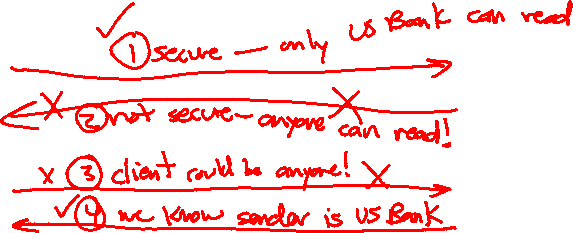 ① secure — only US Bank can read
② not secure — anyone can read!
③ client could be anyone!
④ we know sender is US Bank